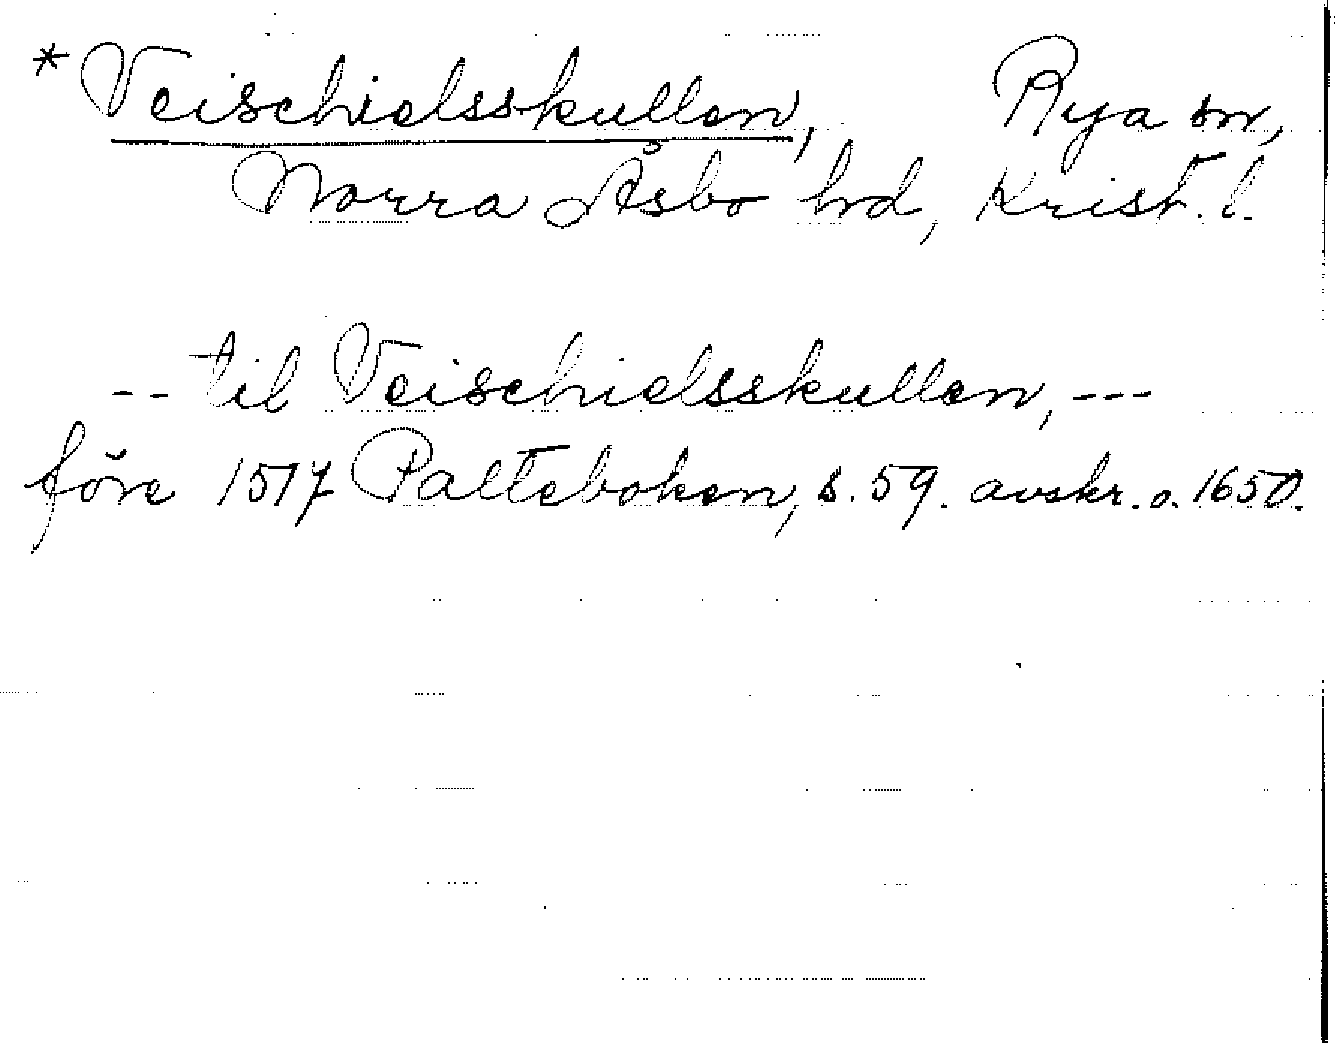 *Veischielsskullen, Rya sn,
Norra Åsbo hrd, Krist. l.
-- til Veischielsskullen, ---
före 1517 Palteboken, s. 59. avskr. o. 1650.